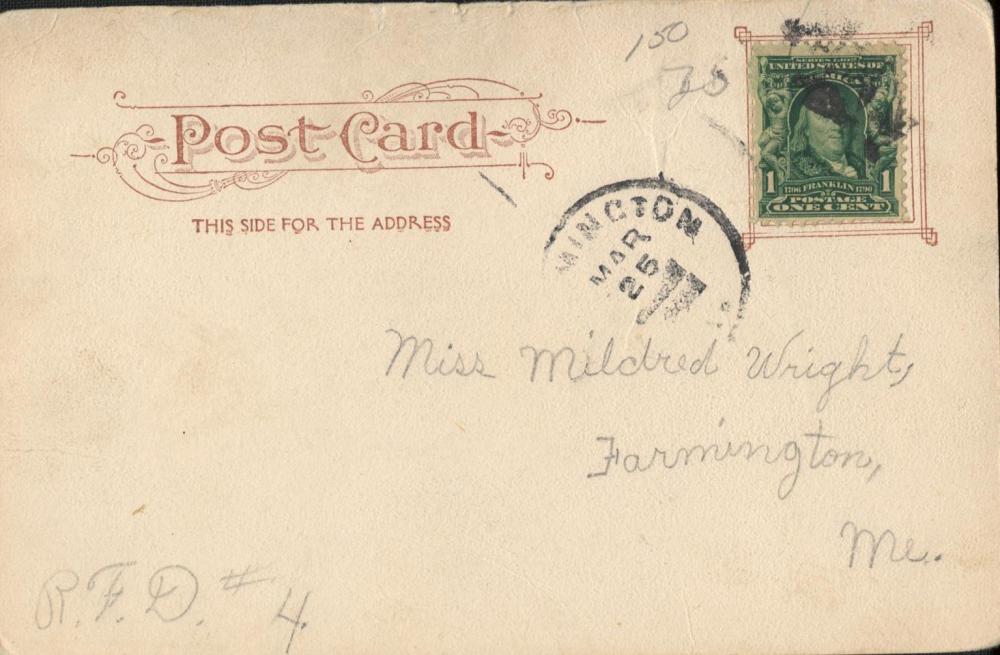 150
75
Post Card
THIS SIDE FOR THE ADDRESS
SERIES 1902
UNITED STATES OF
AMERICA
1 1
1706 FRANKLIN 1790
POSTAGE
ONE CENT
MINGTON
MAR
25
Miss Mildred Wright,
Farmington,
Me.
R.F.D. # 4.